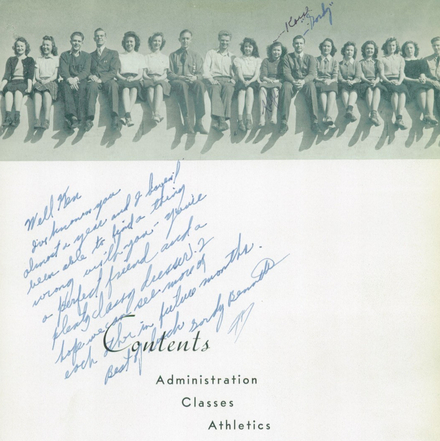 Well Ken
I've known you
almost a year and I haven't
been able to find a thing
wrong with you - you're
a perfect friend and a
plenty classy dresser. I
hope we can see more of
each other in future months.
Best of luck Gordy Bennett
Contents
Administration
Classes
Athletics